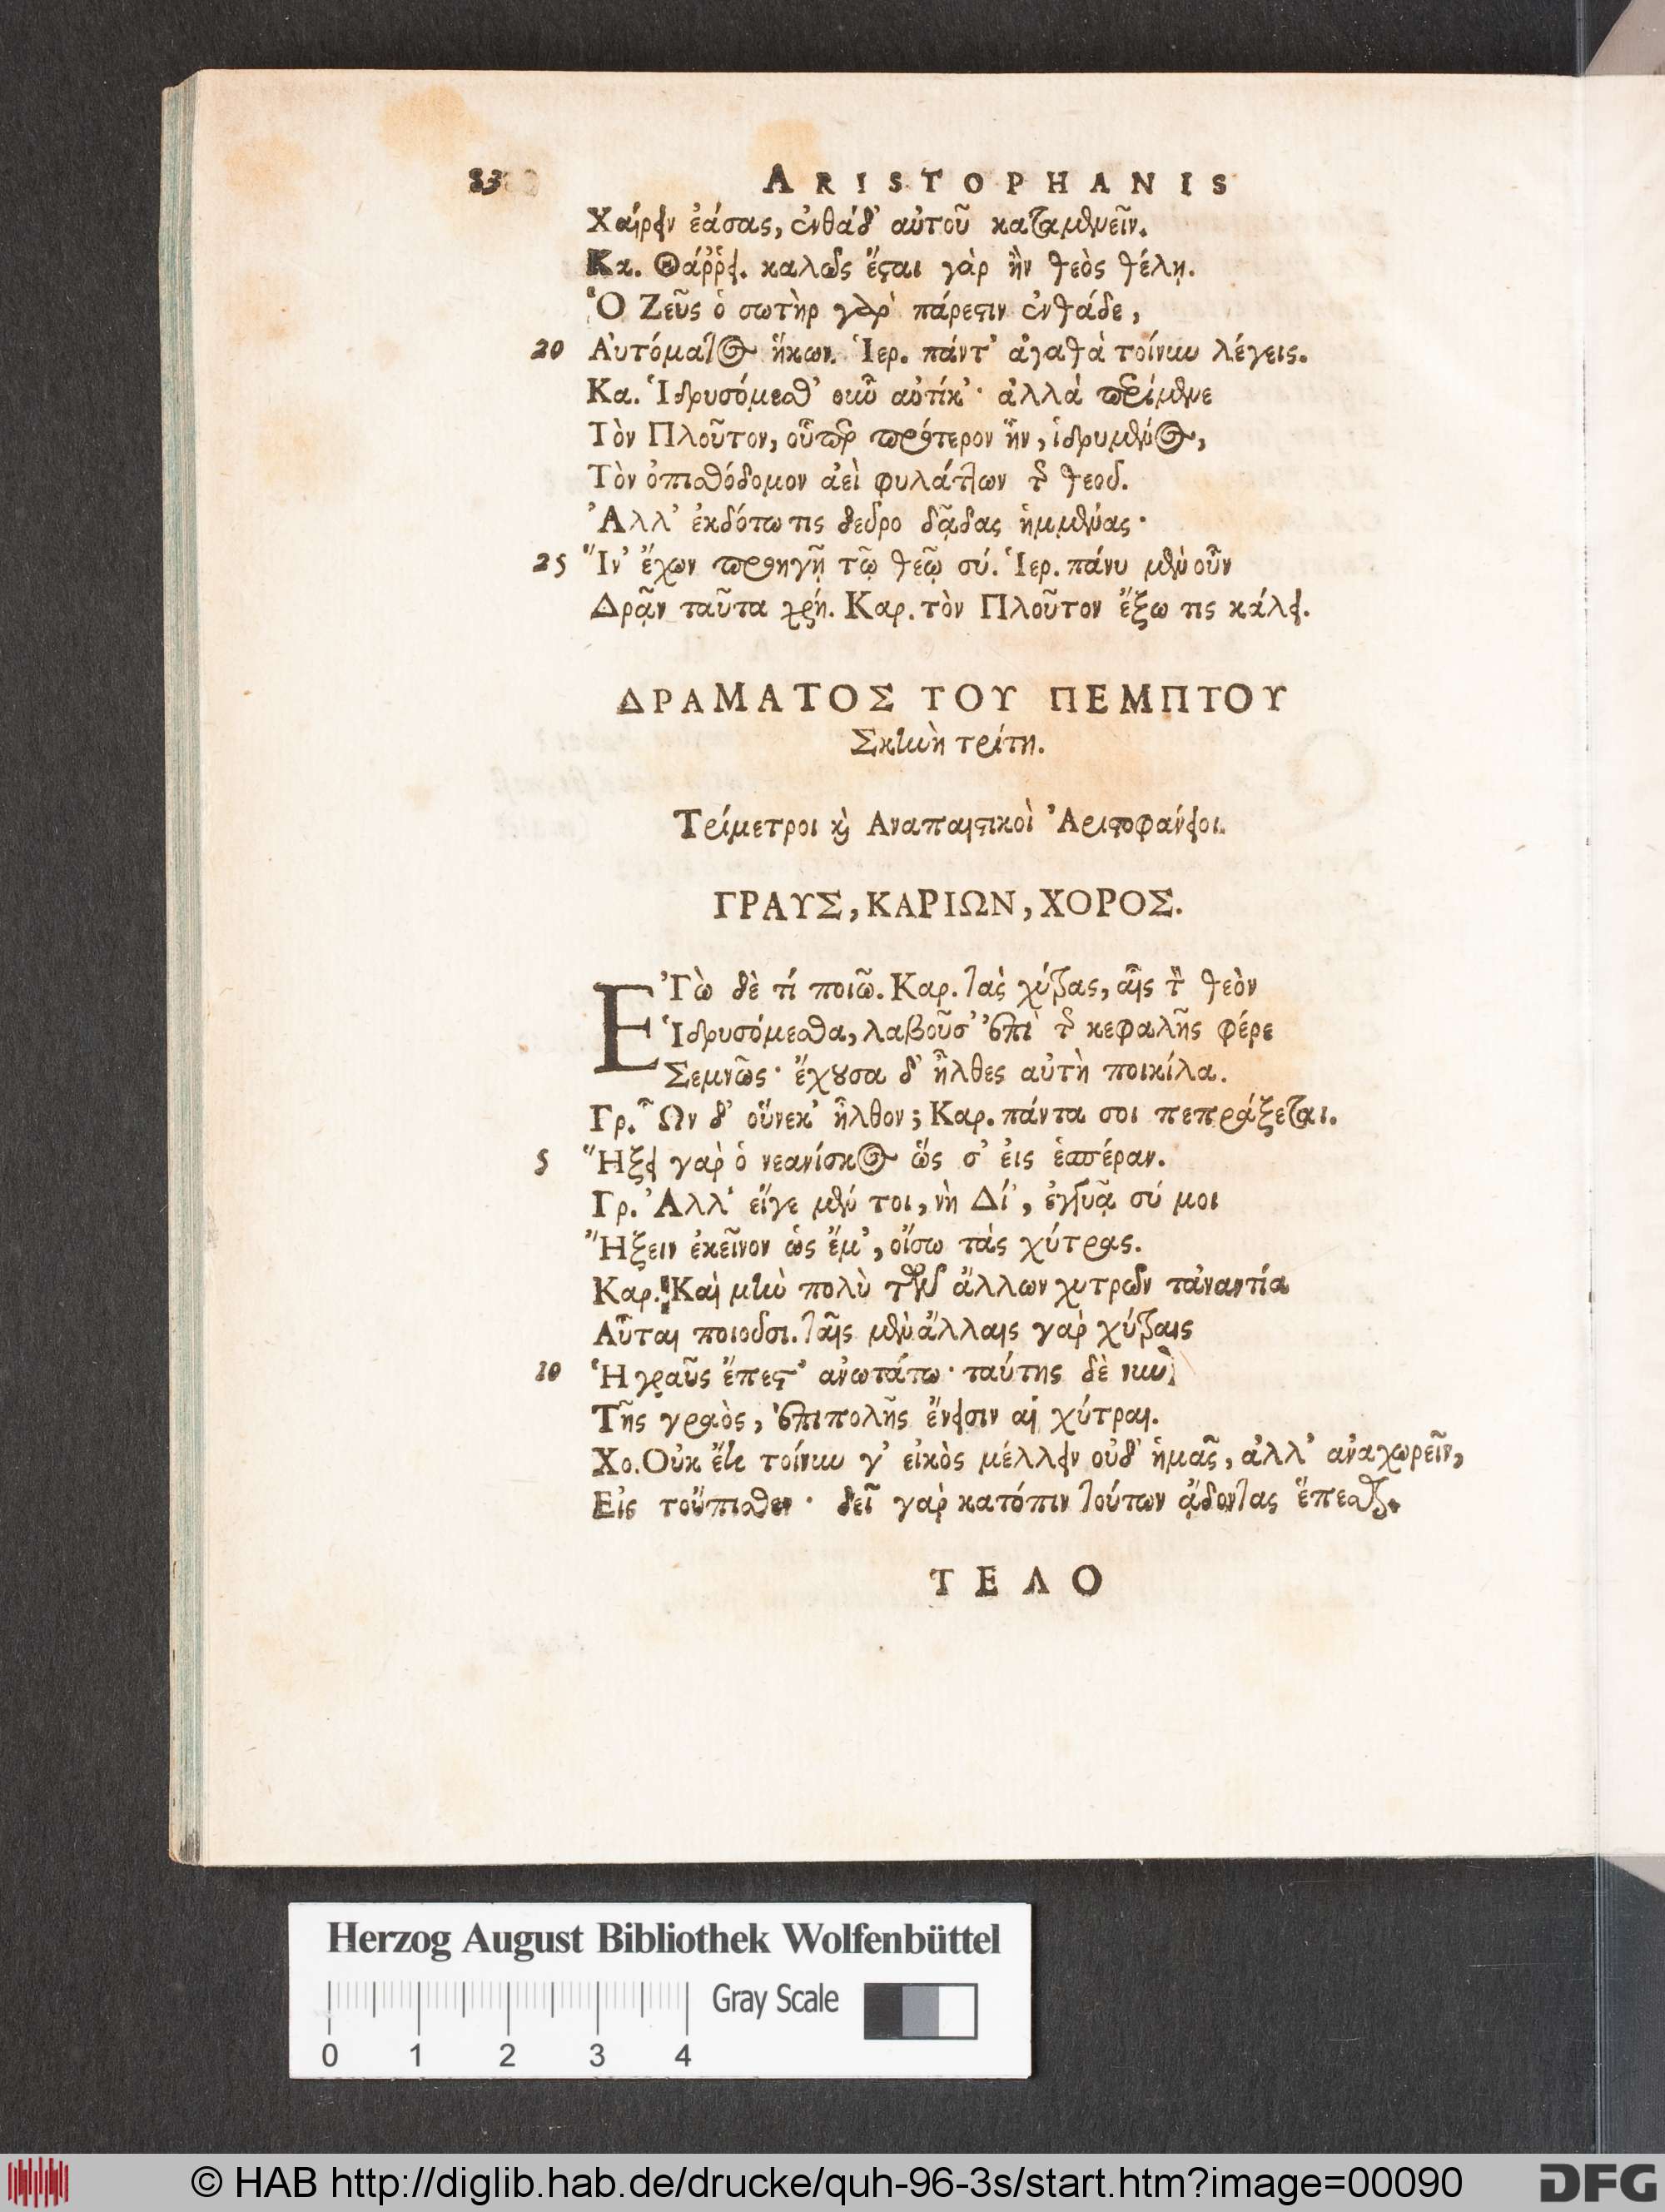 83 ARISTOPHANIS
Χαίρειν ἐάσας, ἐνθάδ' αὐτοῦ καταμένειν.
Κα. Θάῤῥει. καλῶς ἔσται γὰρ ἢν θεὸς θέλῃ.
Ὁ Ζεῦς ὁ σωτὴρ γὰρ πάρεστιν ἐνθάδε,
20 Αὐτόματος ἥκων. Ἱερ. πάντ' ἀγαθὰ τοίνυν λέγεις.
Κα. Ἱδρυσόμεσθ' οὖν αὐτίκ'· ἀλλὰ περίμενε
Τὸν Πλοῦτον, οὗπερ πρότερον ἦν, ἱδρυμένος,
Τὸν ὀπισθόδομον ἀεὶ φυλάττων τῆς θεοῦ.
Ἀλλ' ἐκδότω τις δεῦρο δᾷδας ἡμμένας·
25 Ἵν' ἔχων προηγῇ τῷ θεῷ σύ. Ἱερ. πάνυ μὲν οὖν
Δρᾷν ταῦτα χρή. Καρ. τὸν Πλοῦτον ἔξω τις κάλει.
ΔΡΑΜΑΤΟΣ ΤΟΥ ΠΕΜΠΤΟΥ
Σκηνὴ τρίτη.
Τρίμετροι καὶ Αναπαιστικοὶ Ἀριστοφάνειοι.
ΓΡΑΥΣ, ΚΑΡΙΩΝ, ΧΟΡΟΣ.
ἘΓὼ δὲ τί ποιῶ. Καρ. τὰς χύτρας, αἷς τὸν θεὸν
Ἱδρυσόμεσθα, λαβοῦσ' ἐπὶ τῆς κεφαλῆς φέρε
Σεμνῶς· ἔχουσα δ' ἦλθες αὐτὴ ποικίλα.
Γρ. Ὧν δ' οὕνεκ' ἦλθον; Καρ. πάντα σοι πεπράξεται.
5 Ἥξει γὰρ ὁ νεανίσκος ὥς σ' εἰς ἑσπέραν.
Γρ. Ἀλλ' εἴγε μέν τοι, νὴ Δί', ἐγγυᾷ σύ μοι
Ἥξειν ἐκεῖνον ὡς ἔμ', οἴσω τὰς χύτρας.
Καρ. Καὶ μὴν πολὺ τῶν ἄλλων χυτρῶν τἀναντία
Αὗται ποιοῦσι. ταῖς μὲν ἄλλαις γὰρ χύτραις
10 Ἡ γραῦς ἔπεστ' ἀνωτάτω· ταύτης δὲ νῦν
Τῆς γραὸς, ἐπιπολῆς ἔνεισιν αἱ χύτραι.
Χο. Οὐκ ἔτι τοίνυν γ' εἰκὸς μέλλειν οὐδ' ἡμᾶς, ἀλλ' ἀναχωρεῖν,
Εἰς τοὔπισθεν· δεῖ γὰρ κατόπιν τούτων ᾄδοντας ἕπεσθαι.
ΤΕΛΟ
Herzog August Bibliothek Wolfenbüttel
0 1 2 3 4 Gray Scale
© HAB http://diglib.hab.de/drucke/quh-96-3s/start.htm?image=00090 DFG